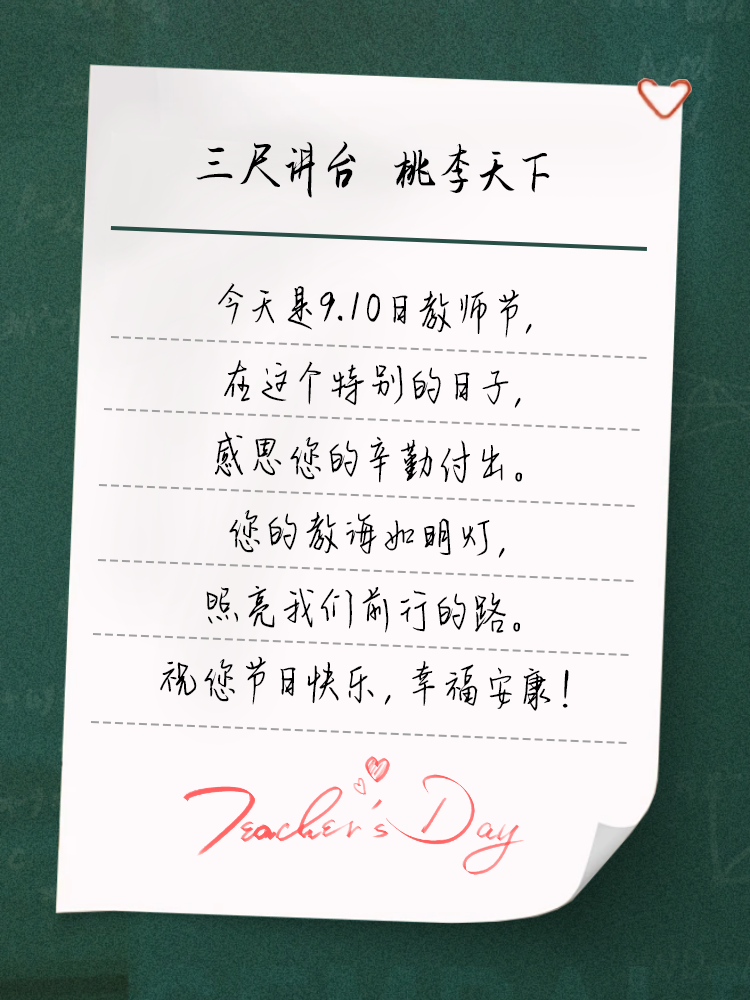 三尺讲台 桃李天下
今天是9.10日教师节,
在这个特别的日子,
感恩您的辛勤付出。
您的教诲如明灯,
照亮我们前行的路。
祝您节日快乐,幸福安康!
Teacher's Day